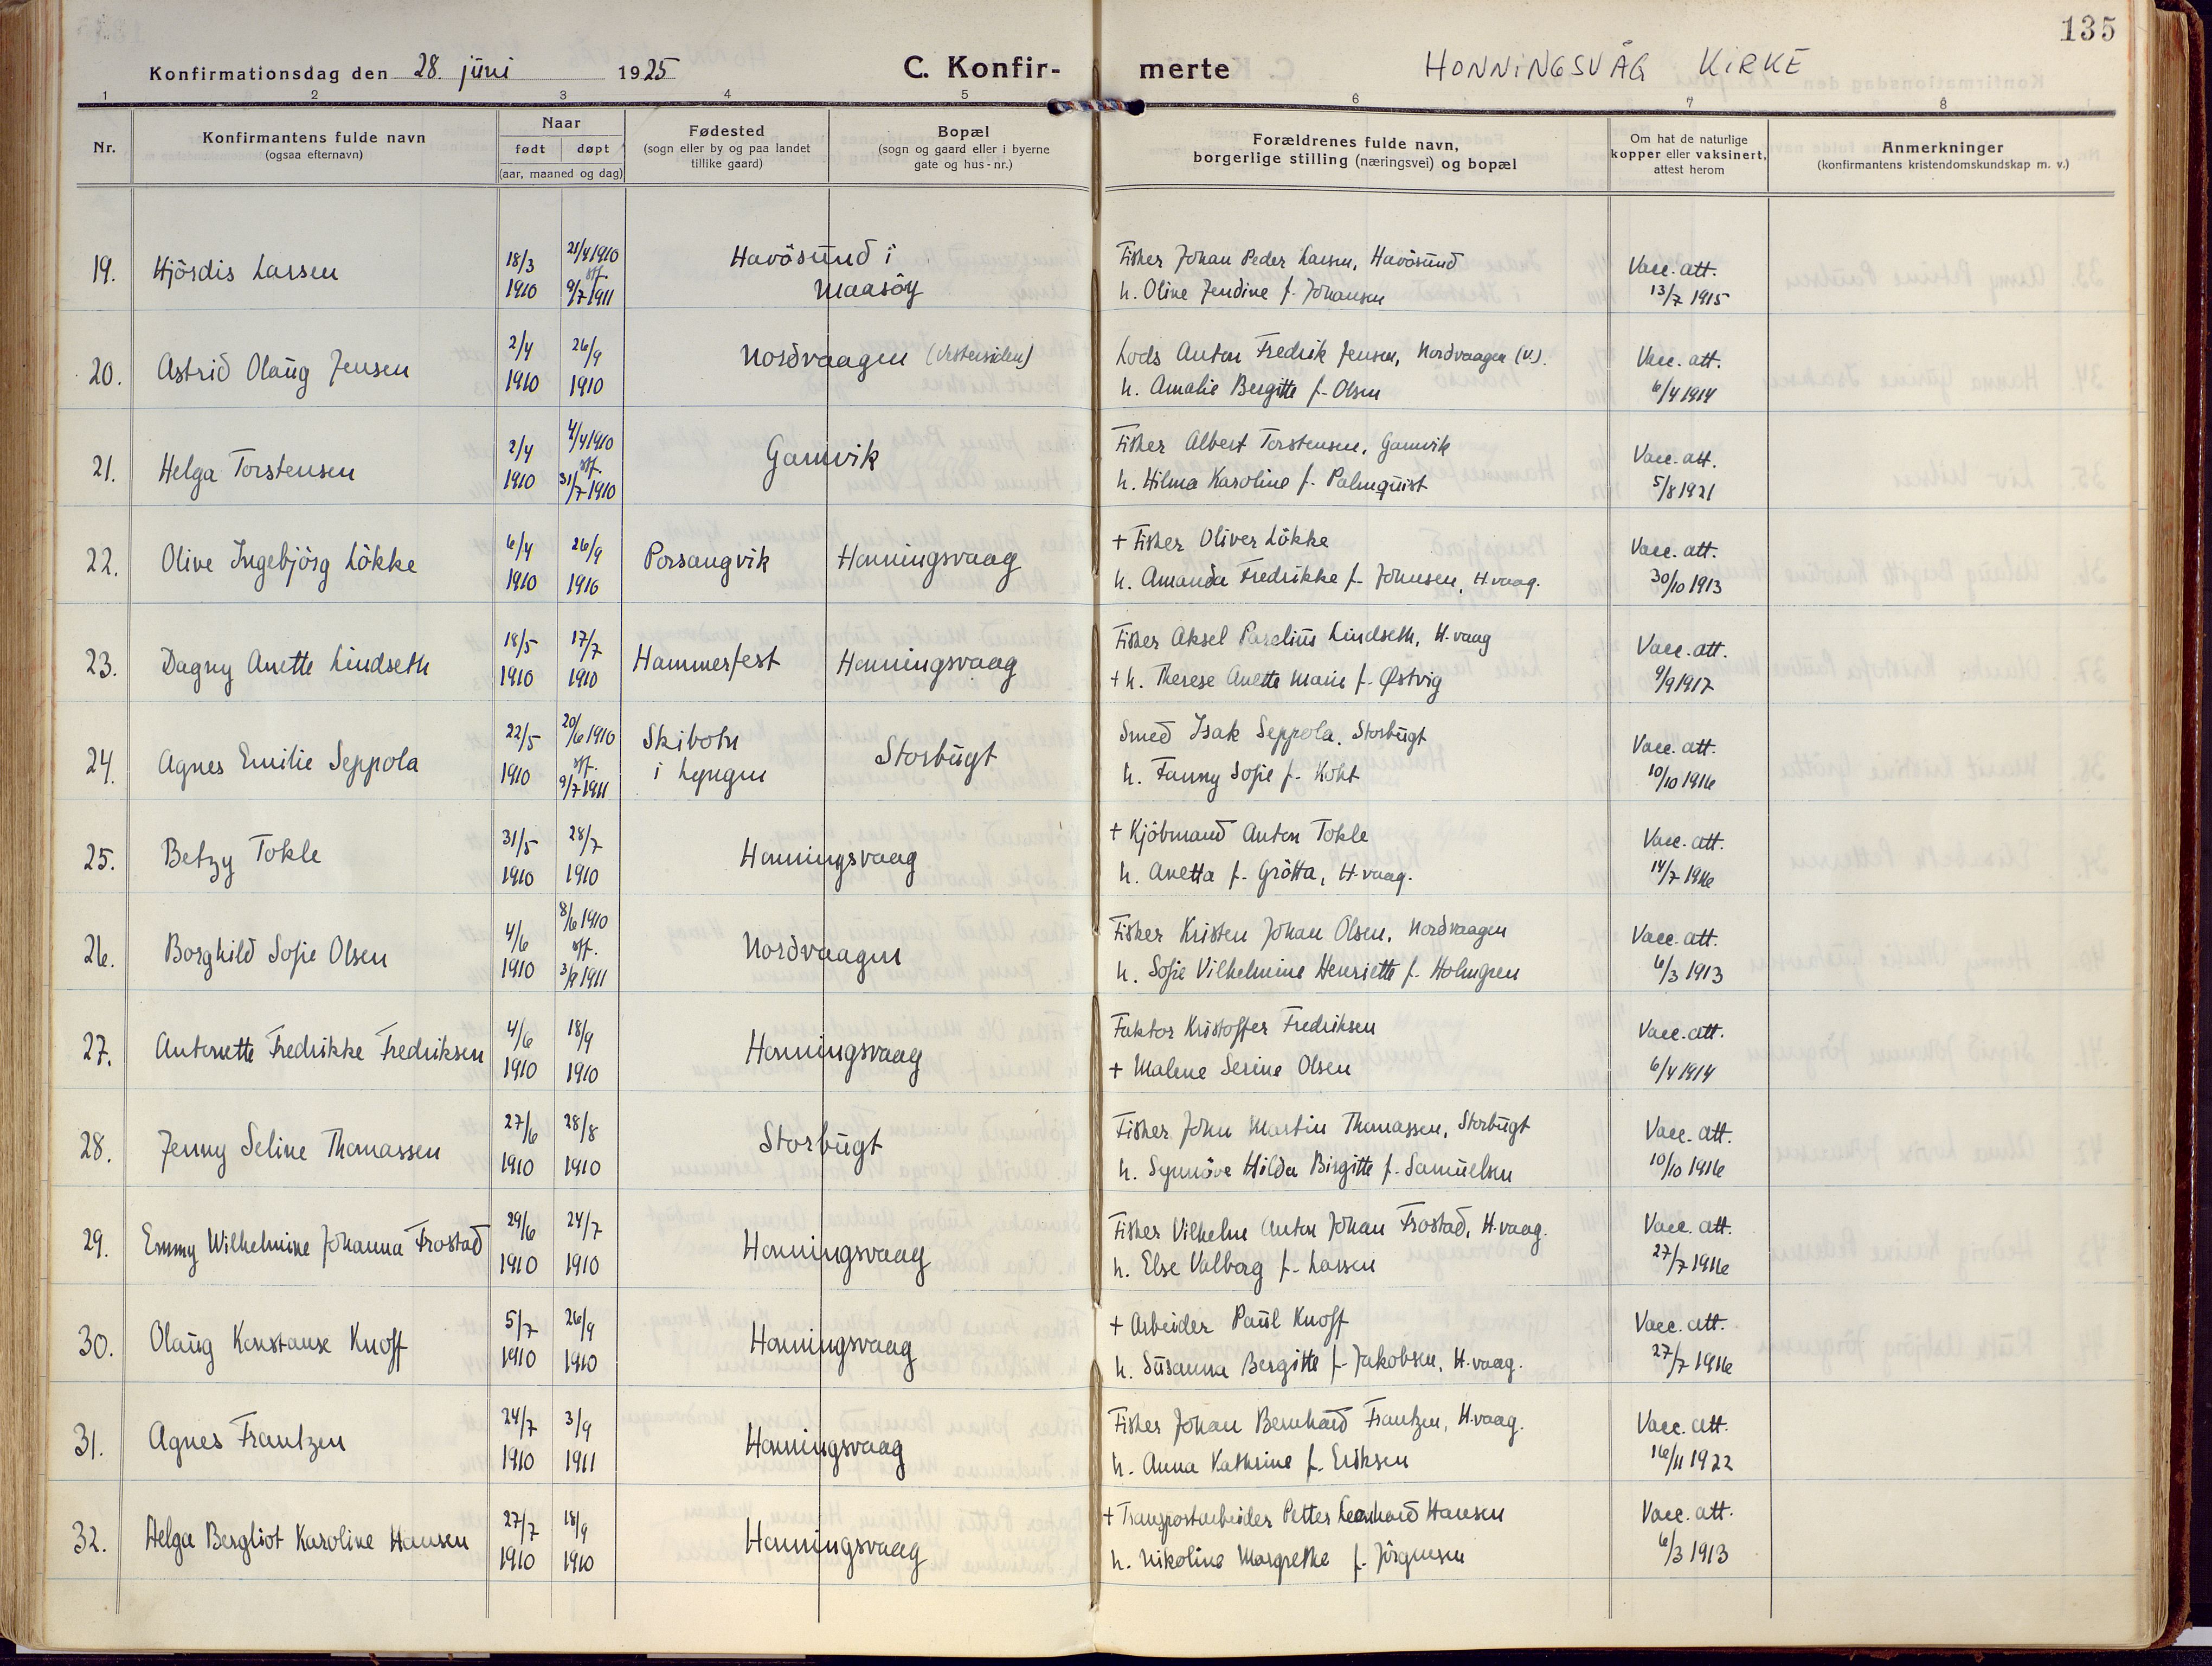 135
Konfirmationsdag den 28. juni 1925
C. Konfir-merte
HONNINGSVÅG KIRKE
1 2 3 4 5 6 7 8
Nr.
Konfirmantens fulde navn
(ogsaa efternavn)
Naar
født døpt
(aar, maaned og dag)
Fødested
(sogn eller by og paa landet
tillike gaard)
Bopæl
(sogn og gaard eller i byerne
gate og hus-nr.)
Forældrenes fulde navn,
borgerlige stilling (næringsvei) og bopæl
Om hat de naturlige
kopper eller vaksinert,
attest herom
Anmerkninger
(konfirmantens kristendomskundskap m. v.)
19. Hjördis Larsen 18/3 1910 25/4 1910 stf. 9/7 1911 Havösund i Maasöy
Fisker Johan Peder Larsen, Havösund
h. Oline Jendine f. Johansen
Vacc. att. 13/7 1915
20. Astrid Olaug Jensen 2/4 1910 26/9 1910 Nordvaagen (Vestersiden)
Lods Anton Fredrik Jensen, Nordvaagen (V.).
h. Amalie Bergitte f. Olsen
Vacc. att. 6/4 1914
21. Helga Torstensen 2/4 1910 4/4 1910 stf. 31/7 1910 Gamvik
Fisker Albert Torstensen, Gamvik
h. Hilma Karoline f. Palmquist
Vacc. att. 5/8 1921
22. Olive Ingebjörg Lökke 6/4 1910 26/9 1910 Porsangvik Honningsvaag
+ Fisker Oliver Lökke
h. Amanda Fredrikke f. Johnsen, H.vaag.
Vacc. att. 30/10 1913
23. Dagny Anette Lindseth 18/5 1910 17/7 1910 Hammerfest Honningsvaag
Fisker Aksel Parelius Lindseth, H.vaag
+ h. Therese Anette Marie f. Østvig
Vacc. att. 9/9 1917
24. Agnes Emilie Seppola 22/5 1910 20/6 1910 stf. 9/7 1911 Skibotn i Lyngen Storbugt
Smed Isak Seppola, Storbugt
h. Fanny Sofie f. Koht
Vacc. att. 10/10 1916
25. Betzy Tokle 31/5 1910 28/7 1910 Honningsvaag
+ Kjöbmand Anton Tokle
h. Anetta f. Grötta, H.vaag.
Vacc. att. 14/7 1916
26. Borghild Sofie Olsen 4/6 1910 8/6 1910 stf. 3/9 1911 Nordvaagen
Fisker Kristen Johan Olsen, Nordvaagen
h. Sofie Vilhelmine Henriette f. Holmgren
Vacc. att. 6/3 1913
27. Antonette Fredrikke Fredriksen 4/6 1910 18/9 1910 Honningsvaag
Faktor Kristoffer Fredriksen
+ Malene Serine Olsen
Vacc. att. 6/4 1914
28. Jenny Seline Thomassen 27/6 1910 28/8 1910 Storbugt
Fisker John Martin Thomassen, Storbugt
h. Synnöve Hilda Birgitte f. Samuelsen
Vacc. att. 10/10 1916
29. Emmy Wilhelmine Johanna Frostad 29/6 1910 24/7 1910 Honningsvaag
Fisker Vilhelm Anton Johan Frostad, H.vaag.
h. Else Valborg f. Larsen
Vacc. att. 27/7 1916
30. Olaug Konstanse Knoff 5/7 1910 26/9 1910 Honningsvaag
+ Arbeider Paul Knoff
h. Susanna Bergitte f. Jakobsen, H.vaag.
Vacc. att. 27/7 1916
31. Agnes Frantzen 24/7 1910 3/9 1911 Honningsvaag
Fisker Johan Bernhard Frantzen, H.vaag.
h. Anna Kathrine f. Eriksen
Vacc. att. 16/11 1922
32. Helga Bergliot Karoline Hansen 27/7 1910 18/9 1910 Honningsvaag
+ Transportarbeider Petter Leonhard Hansen
h. Nikoline Margrethe f. Jörgensen
Vacc. att. 6/3 1913